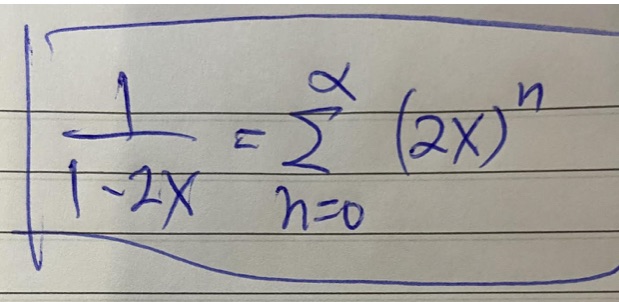 1/(1-2x) = ∑_{n=0}^{∝} (2x)^n